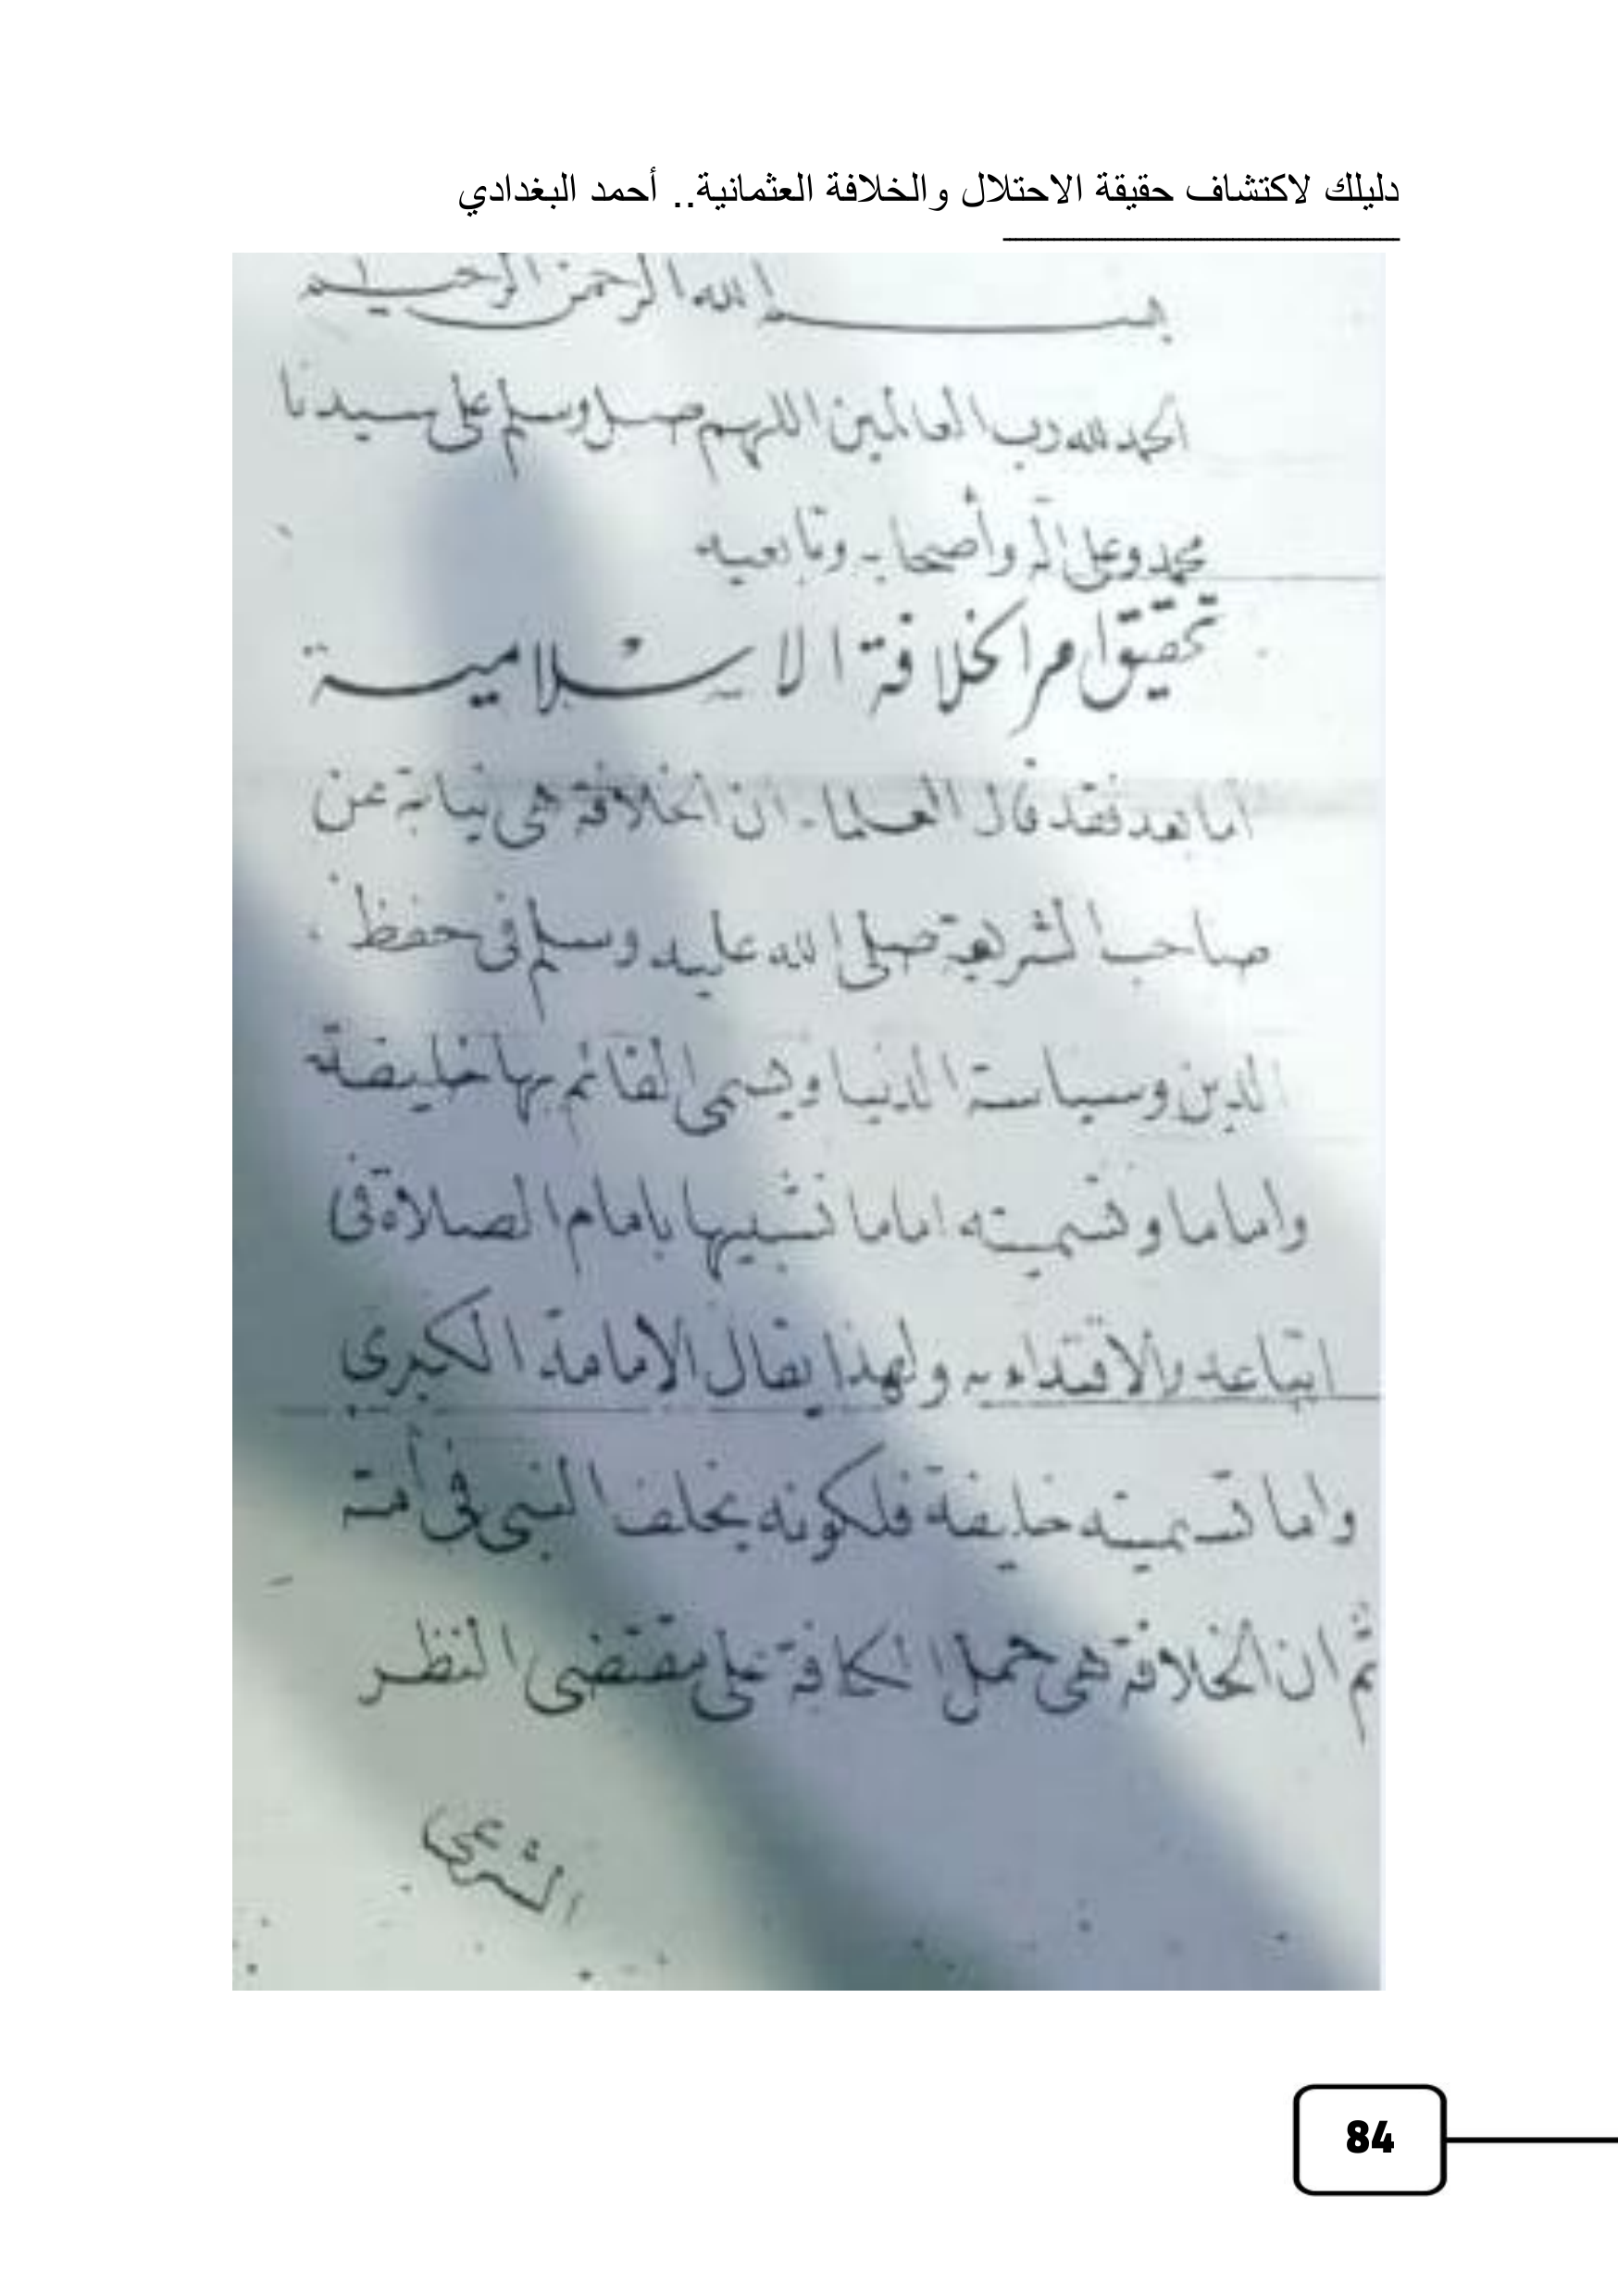 دليلك لاكتشاف حقيقة الاحتلال والخلافة العثمانية.. أحمد البغدادي
بسم الله الرحمن الرحيم
الحمد لله رب العالمين اللهم صل وسلم على سيدنا
محمد وعلى آله وأصحابه وتابعيه
تحقيق امر الخلافة الاسلامية
اما بعد فقد قال العلماء ان الخلافة هى نيابة عن
صاحب الشريعة صلى الله عليه وسلم فى حفظ
الدين وسياسة الدنيا ويسمى القائم بها خليفة
واماما وتسميته اماما تشبيها بامام الصلاة فى
اتباعه والاقتداء به ولهذا يقال الامامة الكبرى
واما تسميته خليفة فلكونه يخلف النبى فى أمته
ثم ان الخلافة هى حمل الكافة على مقتضى النظر
الشرعى
84